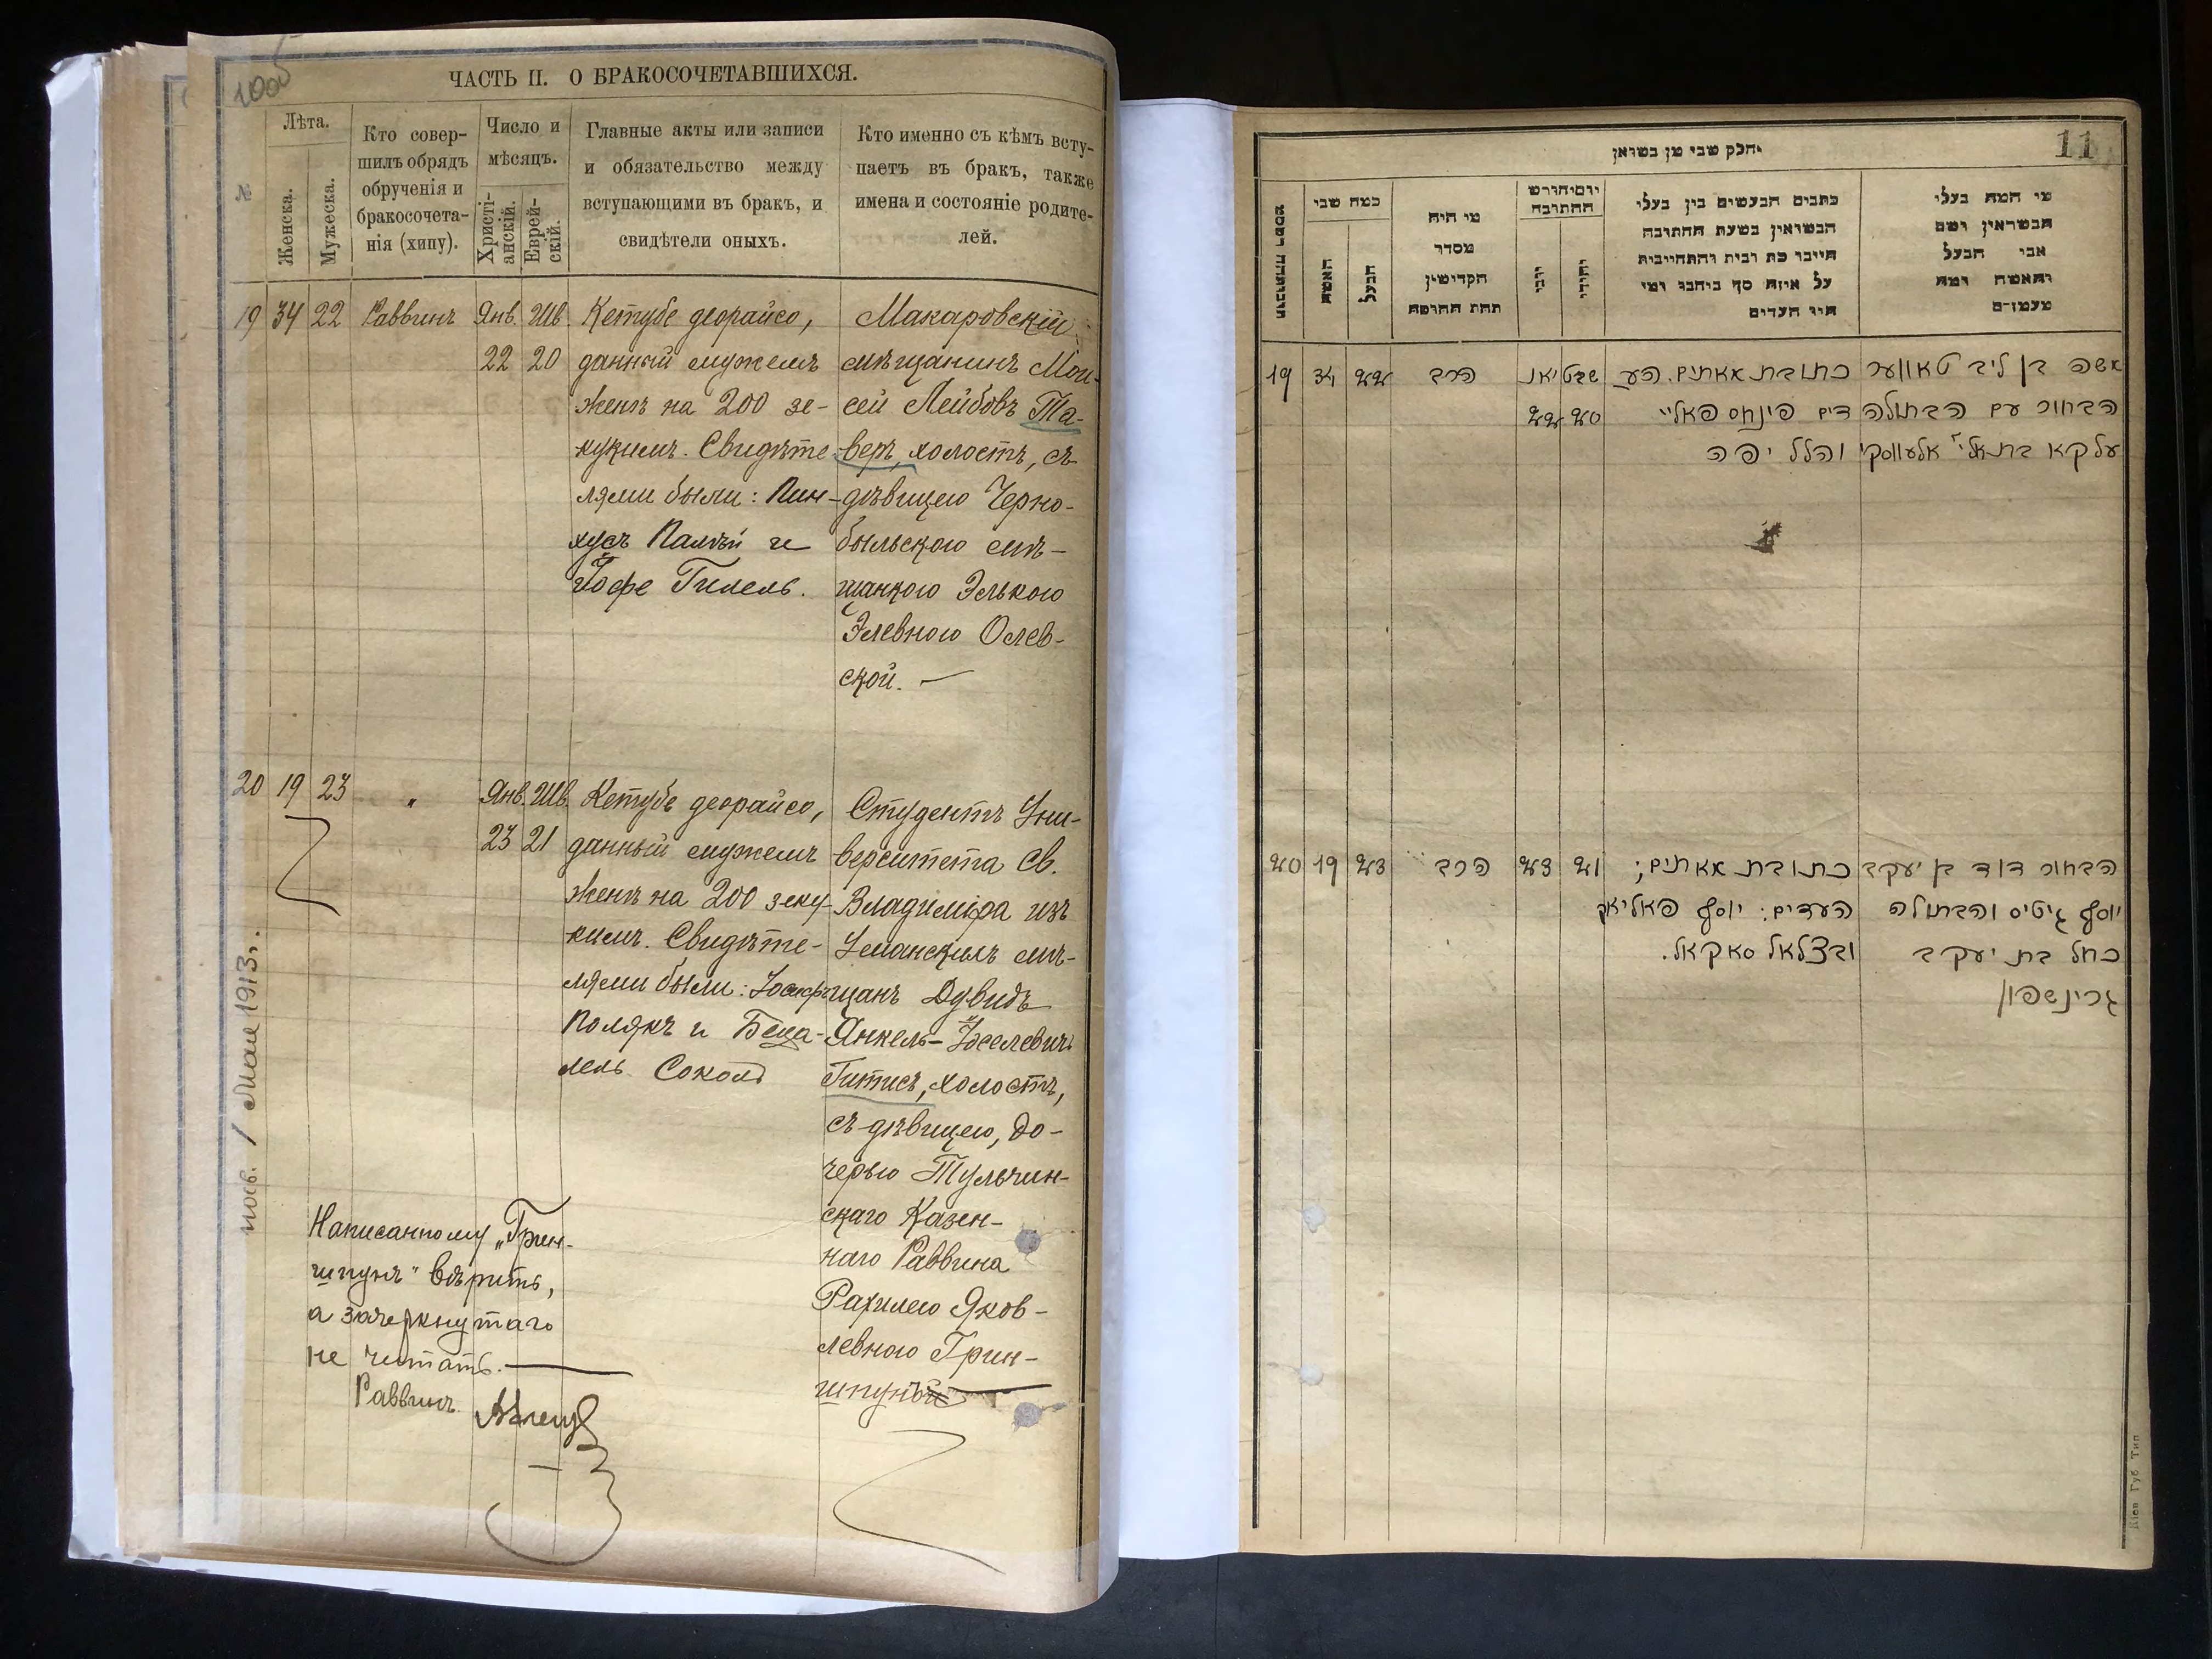 ЧАСТЬ II. О БРАКОСОЧЕТАВШИХСЯ.
№
Лѣта.
Женска.
Мужеска.
Кто совер-
шилъ обрядъ
обрученія и
бракосочета-
нія (хипу).
Число и
мѣсяцъ.
Христі-
анскій.
Еврей-
скій.
Главные акты или записи
и обязательство между
вступающими въ бракъ, и
свидѣтели оныхъ.
Кто именно съ кѣмъ всту-
паетъ въ бракъ, также
имена и состояніе родите-
лей.
19 34 22 Раввинъ Янв. Шв.
22 20
Кетубе деорайсо,
данный мужемъ
женѣ на 200 зе-
кукимъ. Свидѣте-
лями были: Пин-
хусъ Палѣй и
Іофе Гилель.
Макаровскій
мѣщанинъ Мои-
сей Лейбовъ Та-
веръ, холостъ, съ
дѣвицею Черно-
быльскою мѣ-
щанкою Элькою
Элевною Олев-
ской. —
20 19 23 " Янв. Шв.
23 21
Кетубе деорайсо,
данный мужемъ
женѣ на 200 зеку-
кимъ. Свидѣте-
лями были: Іосифъ
Полякъ и Беца-
лель Соколъ
Студентъ Уни-
верситета Св.
Владиміра изъ
Уманскихъ мѣ-
щанъ Дувидъ
Янкель-Іоселевичъ
Гитисъ, холостъ,
съ дѣвицею, до-
черью Тульчин-
скаго Казен-
наго Раввина
Рахилею Яков-
левною Грин-
шпунъ
Написанному „Грин-
шпунъ" вѣрить,
а зачеркнутаго
не читать. —
Раввинъ
1913г.
11
חלק שני מן נשואין
האשה
הבעל
מי היה
מסדר
הקדושין
תחת החופה
כתבים הנעשים בין בעלי
הנשואין בשעת החתונה
על איזה סך כיתבו ומי
היו העדים
מי המה בעלי
הנשואין ושם
אבי הבעל
והאשה ומה
מעמדם
19 34 22 הרב יאנ שבט
22 20
כתובת מאתים. הע
דים פינחס פאליי
והלל יפה
משה בן ליב טאווער
הבחור עם הבתולה
עלקא בת אלי' אלעווסקי
20 19 23 הרב 23 21
כתובת מאתים;
העדים: יוסף פאליאק
ובצלאל סאקאל.
הבחור דוד בן יעקב
יוסף גיטיס והבתולה
רחל בת יעקב
גרינשפון
Кіев Губ Тип